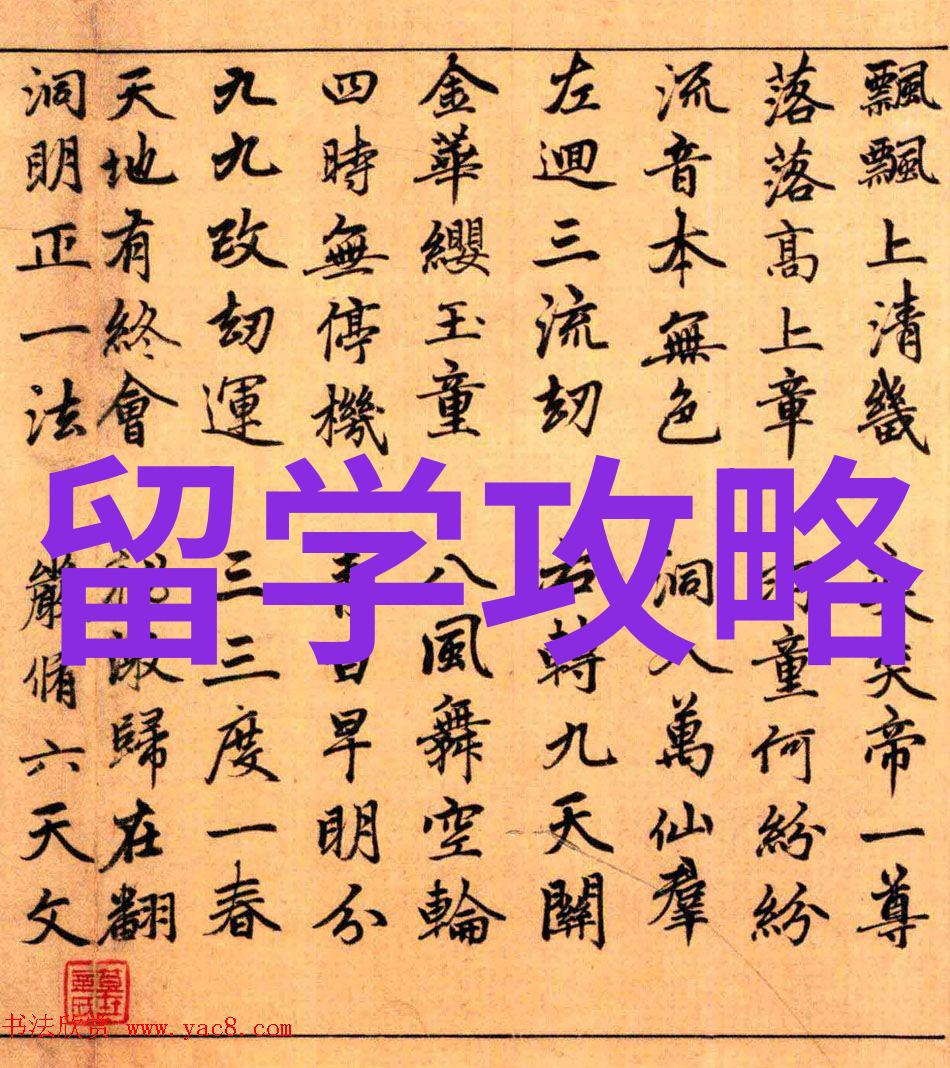 飄飄上清畿 帝一尊
落落高上章 童何紛紛
流音本無色 洞入萬仙羣
左迴三流刼 右轉九天關
金華纓玉童 八風舞空輪
四時無停機 早明分
九九改刼運 三三度一春
天地有終會 歸在翻
洞明正一法 嚴脩六天文
留学攻略
书法欣赏 www.yac8.com